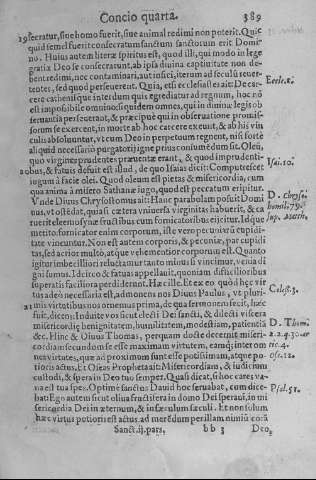 Concio quarta. 389
secratur, siue homo fuerit, siue animal redimi non poterit. Quic
quid semel fuerit consecratum sanctum sanctorum erit Domi-
no. Huius autem literæ spiritus est, quod illi, qui modo in lege
gratiæ Deo se consecrarunt, ab ipsa diuina captiuitate non de
bent redimi, nec contaminari, aut infici, iterum ad seculū reuer-
tentes, sed quod perseuerent. Quia, etsi ecclesiast es ait: De car- Eccle.
cere catenisque interdum quis egrediatur ad regnum, hoc nō
est impossibile omninò: siquidem omnes, qui in diuinæ legis ob
seruantia perseuerant, & præcipuè qui in obseruatione promis-
sorum se exercent, in morte ab hoc carcere exeunt, & ab his vin
culis absoluuntur, vt cum Deo in perpetuum regnent, nisi fortè
aliquid necessario purgatorij igne prius consumēdum sit. Oleū,
quo virgines prudentes præuentæ erant, & quod imprudenti- Isai.10.
bus, & fatuis defuit est illud, de quo Isaias dicit: Computrescet
iugum à facie olei. Quod oleum est pietas, & misericordia, cum
qua anima à misero Sathanæ iugo, quod est peccatum eripitur.
Vnde Diuus Chrysostomus ait: Hanc parabolam posuit Domi D. Chryso.
nus, vt ostēdat, quasi cætera vniuersa virginitas habuerit, & ca homil.79.
ruerit eleemosynæ fructibus cum fornicatoribus eijcitur. Idque sup. Matth.
meritò. fornicator enim corporum, iste vero pecuniarū cupidi-
tate vincuntur. Non est autem corporis, & pecuniæ, par cupidi
tas, sed acrior multo, atque vehementior corporum est. Quanto
igitur imbecilliori reluctantur tanto minus si vincimur, venia di
gni sumus. Idcirco & fatuas appellauit, quoniam difficilioribus
superatis faciliora perdiderunt. Hæc ille. Et ex eo quòd hęc vir
tus adeò necessaria est, admonens nos Diuus Paulus, vt pluri- Colos.3.
mis virtutibus nos ornemus prima, de qua sermonem fecit, hæc
fuit, dicens: Induite vos sicut electi Dei sancti, & dilecti viscera
misericordię benignitatem, humilitatem, modestiam, patientiā D. Thom.
&c. Hinc & Diuus Thomas, perquam doctè decernit miseri- 2.2.q.30.ar
cordiam secundum se esse maximam virtutem, eamque inter om tic.4.
nes virtutes, quæ ad proximum sunt esse potissimam, atque po- Ose.12.
tioris actus. Et Oseas Propheta ait: Misericordiam, & iudicium
custodi, & spera in Deo tuo semper. Quasi dicat, siluoc cares va-
na est tua spes. Optimè sanctus Dauid hoc seruabat, cum dice- Psal.51.
bat: Ego autem sicut oliua fructifera in domo Dei speraui, in mi
sericordia Dei in æternum, & in sæculum sæculi. Et non solum
hæc virtus potioris est actus ad merēdum per illam, nimiū corā
Sanct. ij. pars. bb 3 Deo,